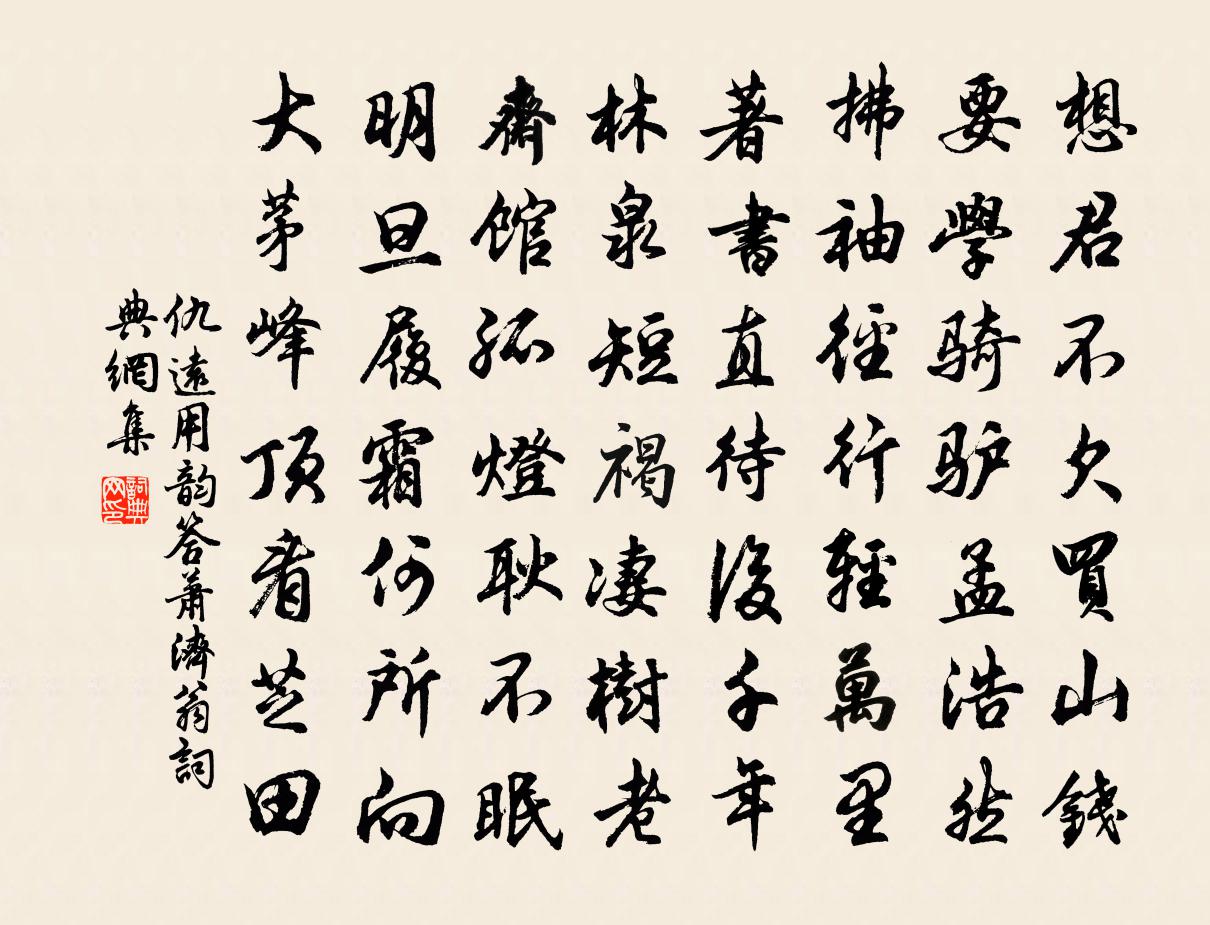 想君不欠買山錢
要學騎驴孟浩然
拂袖徑行輕萬里
著書直待後千年
林泉短褐淒樹老
齋館孤燈耿不眠
明旦履霜何所向
大茅峰頂看芝田
仇遠用韵答蕭濟翁詞
典網集
詞典網印